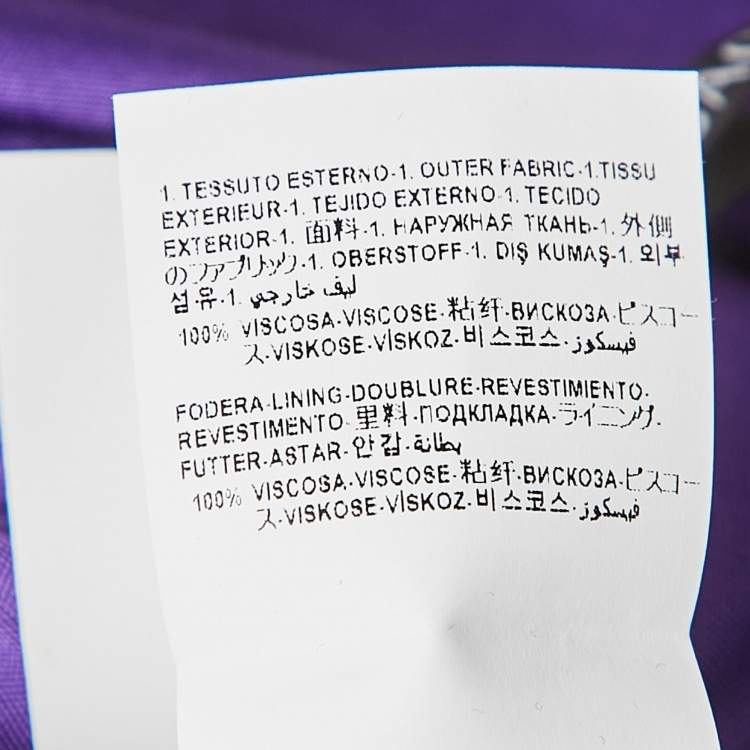 1. TESSUTO ESTERNO-1. OUTER FABRIC-1.TISSU
EXTERIEUR-1. TEJIDO EXTERNO-1. TECIDO
EXTERIOR-1. 面料-1. НАРУЖНАЯ ТКАНЬ-1. 外側
のファブリック-1. OBERSTOFF-1. DIŞ KUMAŞ-1. 외부
섬유-1. ليف خارجي
100% VISCOSA-VISCOSE-粘纤-ВИСКОЗА-ビスコー
ス-VISKOSE-VİSKOZ-비스코스-فيسكوز
FODERA-LINING-DOUBLURE-REVESTIMIENTO-
REVESTIMENTO-里料-ПОДКЛАДКА-ライニング-
FUTTER-ASTAR-안감-بطانة
100% VISCOSA-VISCOSE-粘纤-ВИСКОЗА-ビスコー
ス-VISKOSE-VİSKOZ-비스코스-فيسكوز